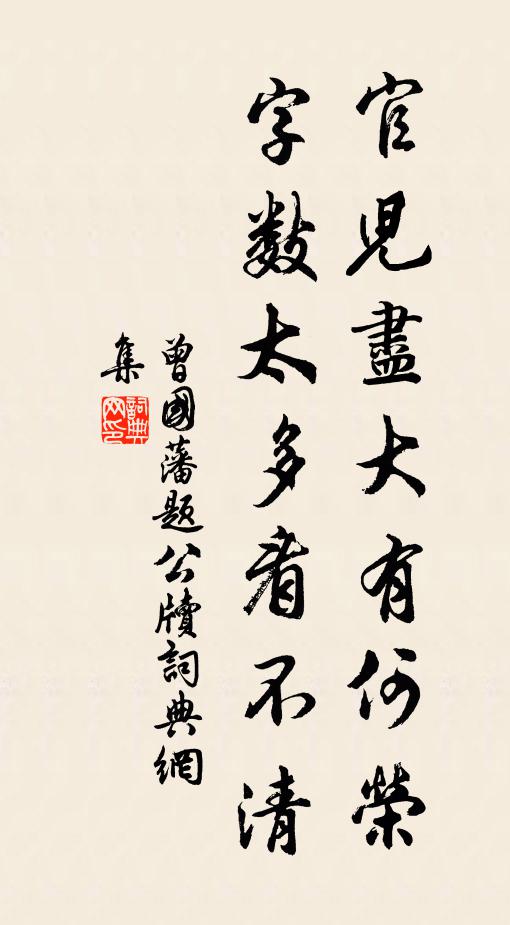 官兒盡大有何榮
字數太多看不清
曾國藩題公牘詞典網
集
詞典
网印